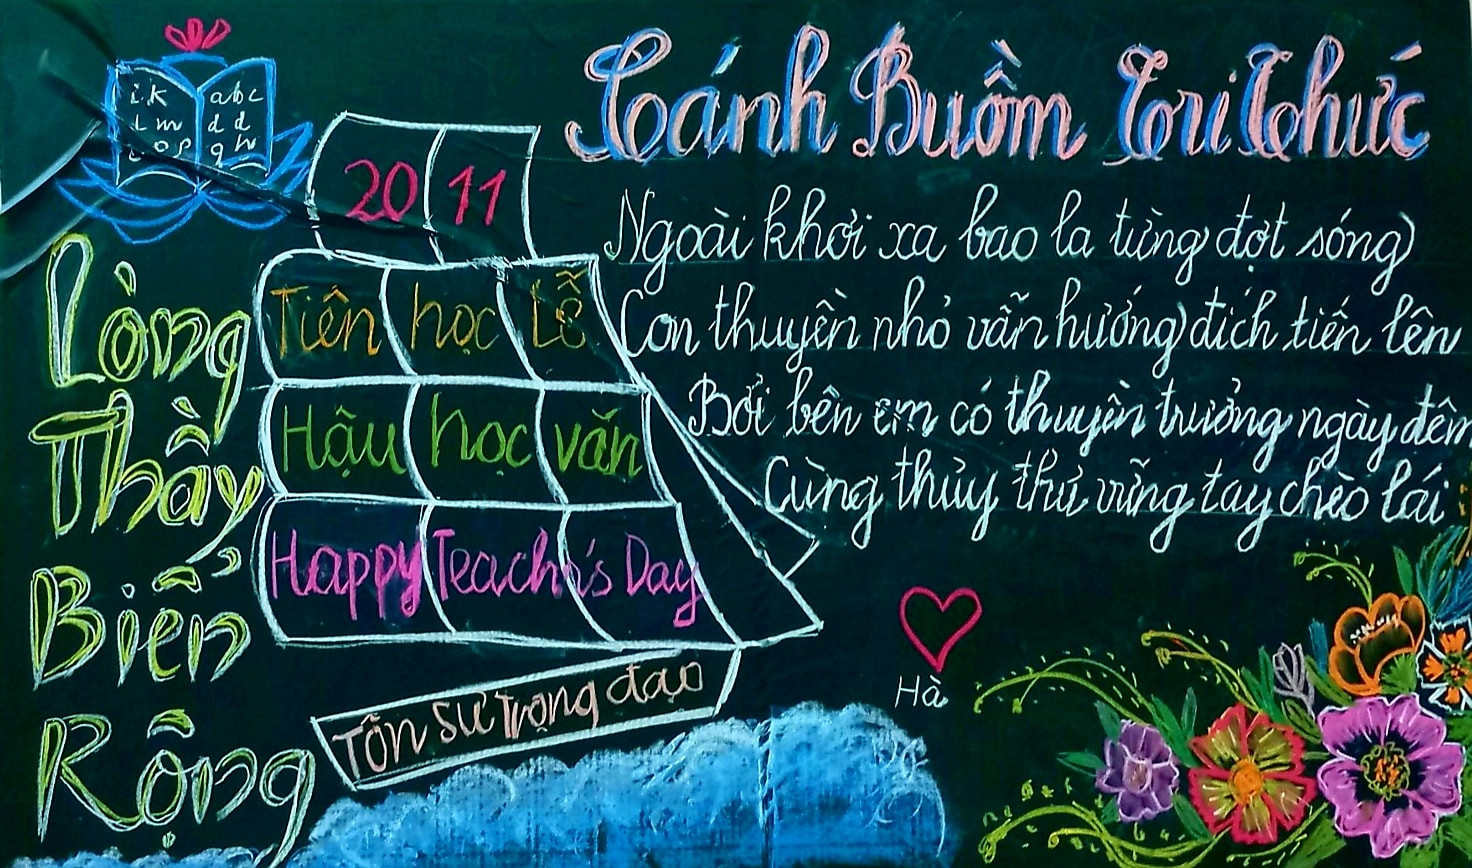 Cánh Buồm Tri Thức
i k abc
l m d d
o p q h
20 11
Ngoài khơi xa bao la từng đợt sóng
Con thuyền nhỏ vẫn hướng đích tiến lên
Bởi bên em có thuyền trưởng ngày đêm
Cùng thủy thủ vững tay chèo lái
Lòng
Thầy
Biển
Rộng
Tiên học Lễ
Hậu học văn
Happy Teach's Day
Tôn Sư Trọng đạo
Hà